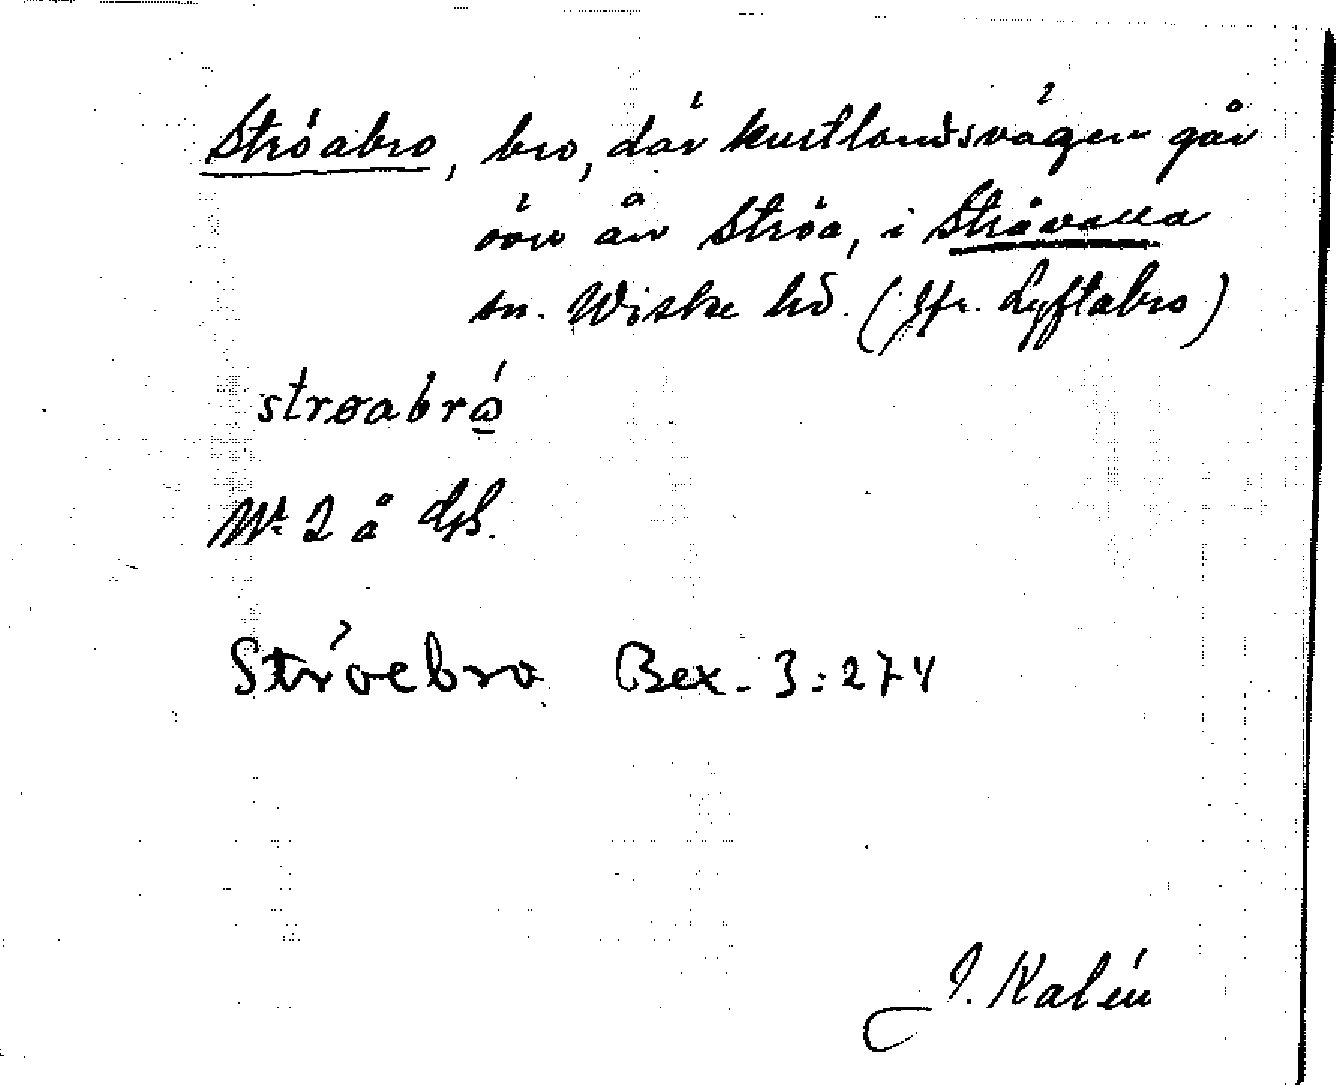 Ströabro, bro, där kustlandsvägen går
över ån Ströa, i Stråvalla
sn. Wiske hd. (Jfr. Lyftabro)
strøabró
Nr 2 å
Ströebro Bex. 3:274
J. Kalén